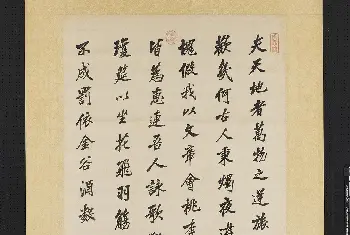 夫天地者萬物之逆旅
歡幾何古人秉燭夜遊
塊假我以文章會桃李
皆為惠連吾人詠歌
瓊筵以坐花飛羽觴
不成罰依金谷酒數